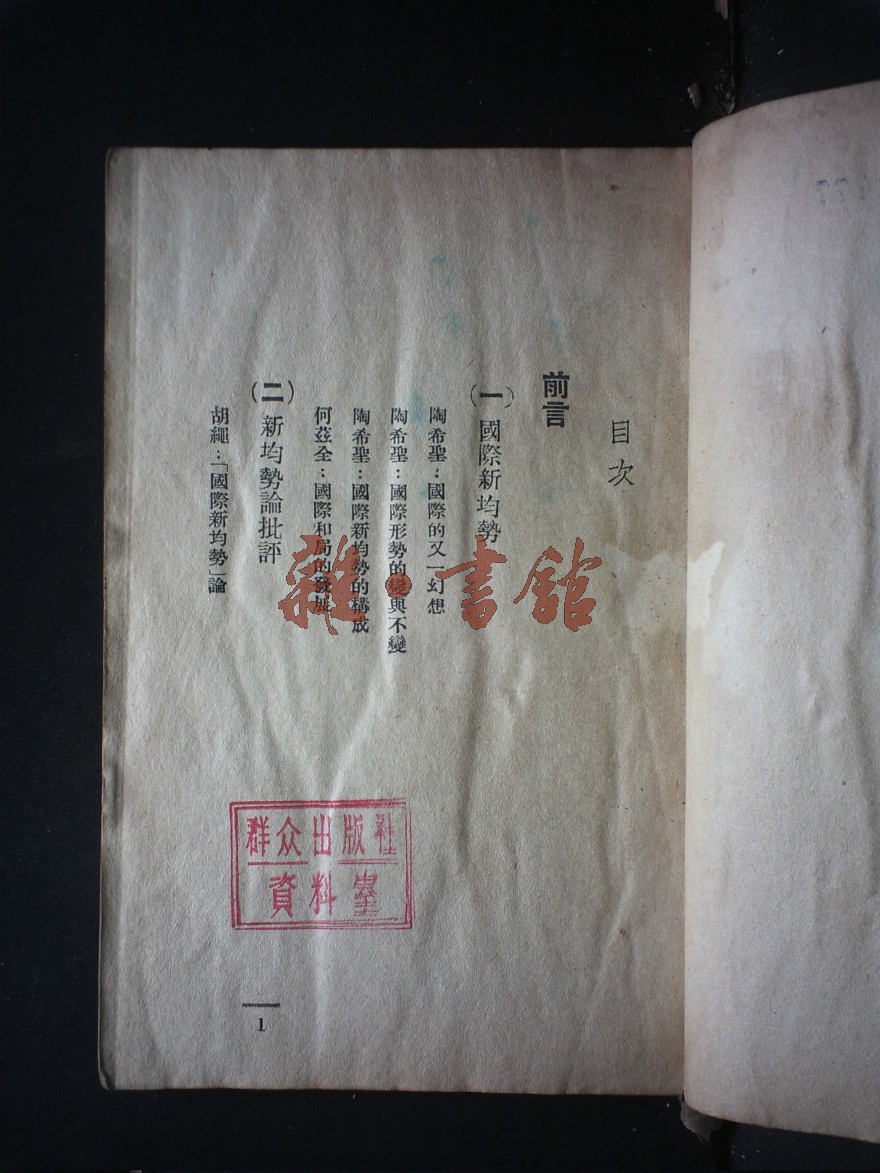 目次
前言
(一) 國際新均勢
陶希聖：國際的又一幻想
陶希聖：國際形勢的變與不變
陶希聖：國際新均勢的構成
何茲全：國際和局的發展
(二) 新均勢論批評
胡繩：「國際新均勢」論
雜·書館
群众出版社
資料室
1